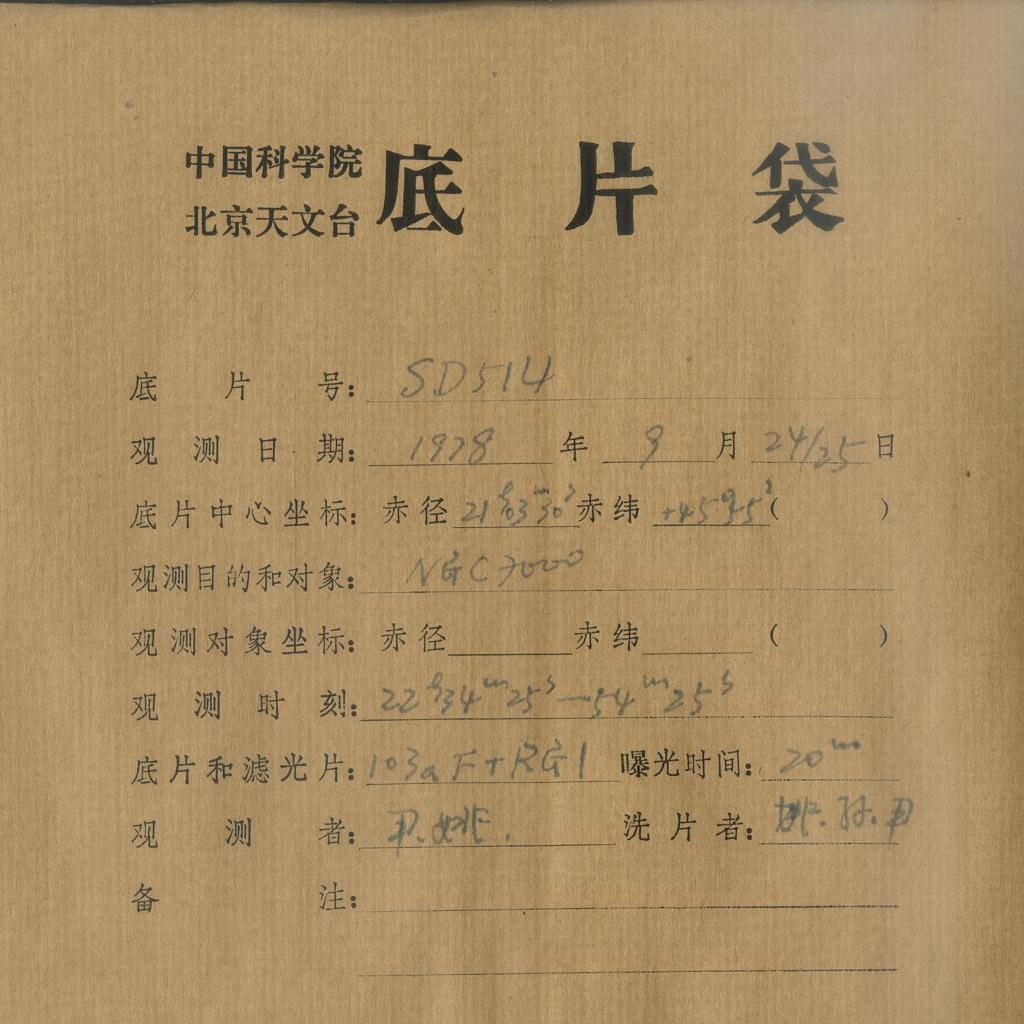 中国科学院
北京天文台 底片袋
底片号: SD514
观测日期: 1978年9月24/25日
底片中心坐标: 赤径 21h03m30s 赤纬 +45°45'( )
观测目的和对象: NGC7000
观测对象坐标: 赤径 赤纬 ( )
观测时刻: 22h34m25s—54m25s
底片和滤光片: 103aF+RG1 曝光时间: 20m
观测者: 尹.姚. 洗片者: 姚.孙.尹
备注: